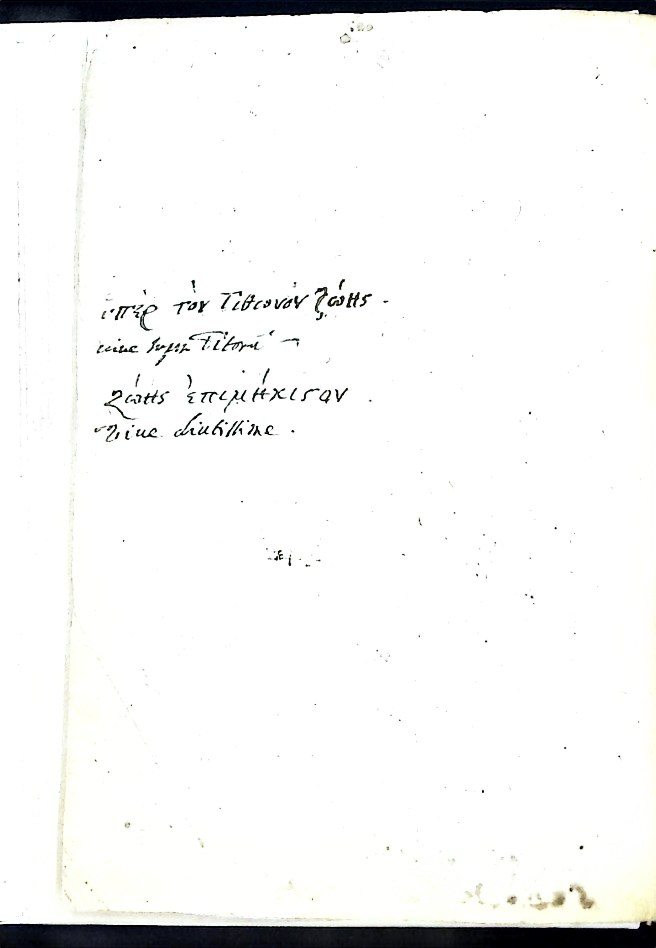 ὑπὲρ τὸν Τιθωνὸν ζώῃς .
uiue supra Titonū
ζώῃς ἐπιμήκιςον .
uiue diutissime .